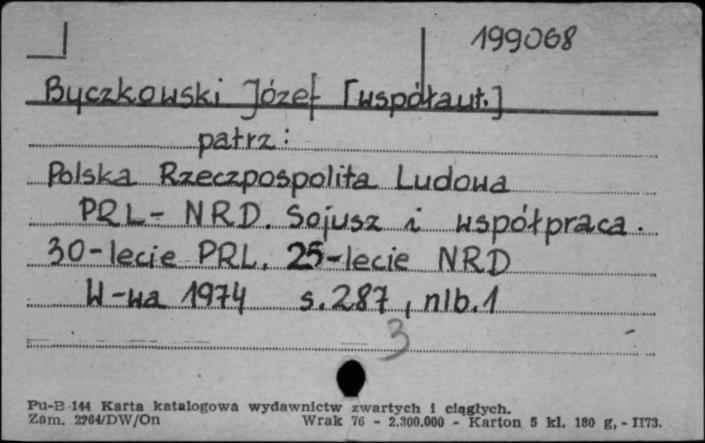 199068
Byczkowski Józef [współaut.]
patrz:
Polska Rzeczpospolita Ludowa
PRL- NRD. Sojusz i współpraca.
30-lecie PRL. 25-lecie NRD
W-wa 1974 s.287, nlb.1
3
Pu-B-144 Karta katalogowa wydawnictw zwartych i ciągłych.
Zam. 2264/DW/On Wrak 76 - 2.300.000 - Karton 5 kl. 180 g, - II73.